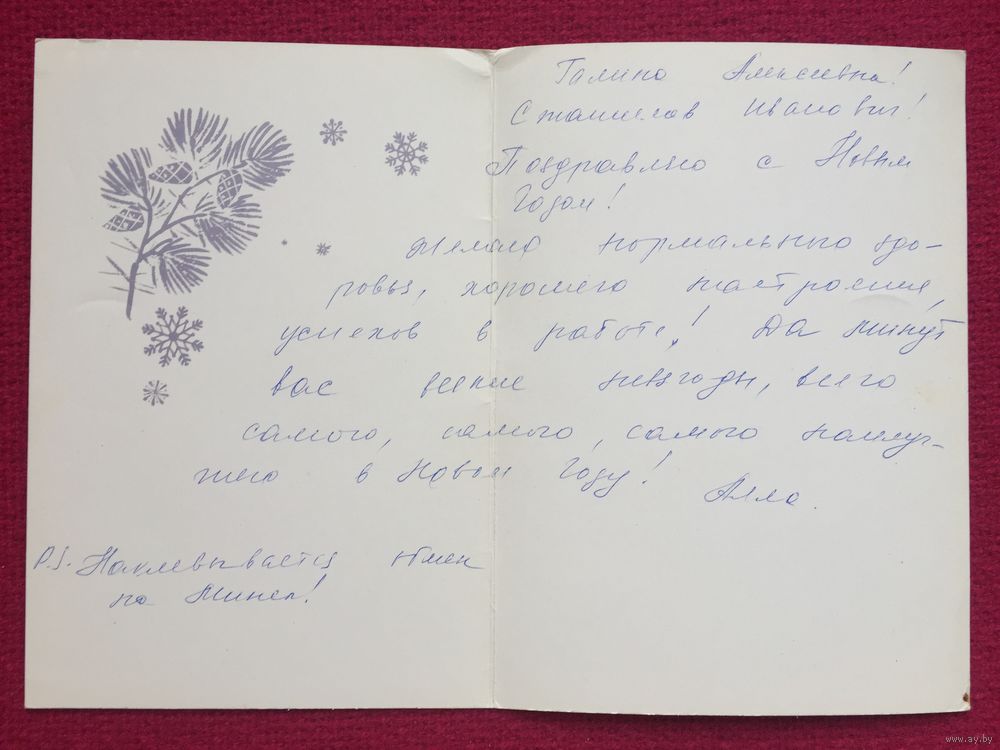 Галина Алексеевна!
Станислав Иванович!
Поздравляю с Новым
Годом!
Желаю нормального здо-
ровья, хорошего настроения,
успехов в работе! Да минут
вас всякие невзгоды, всего
самого, самого, самого наилуч-
шего в Новом Году!
Алла.
P.S. Наклевывается обмен
на Минск!
www.ay.by